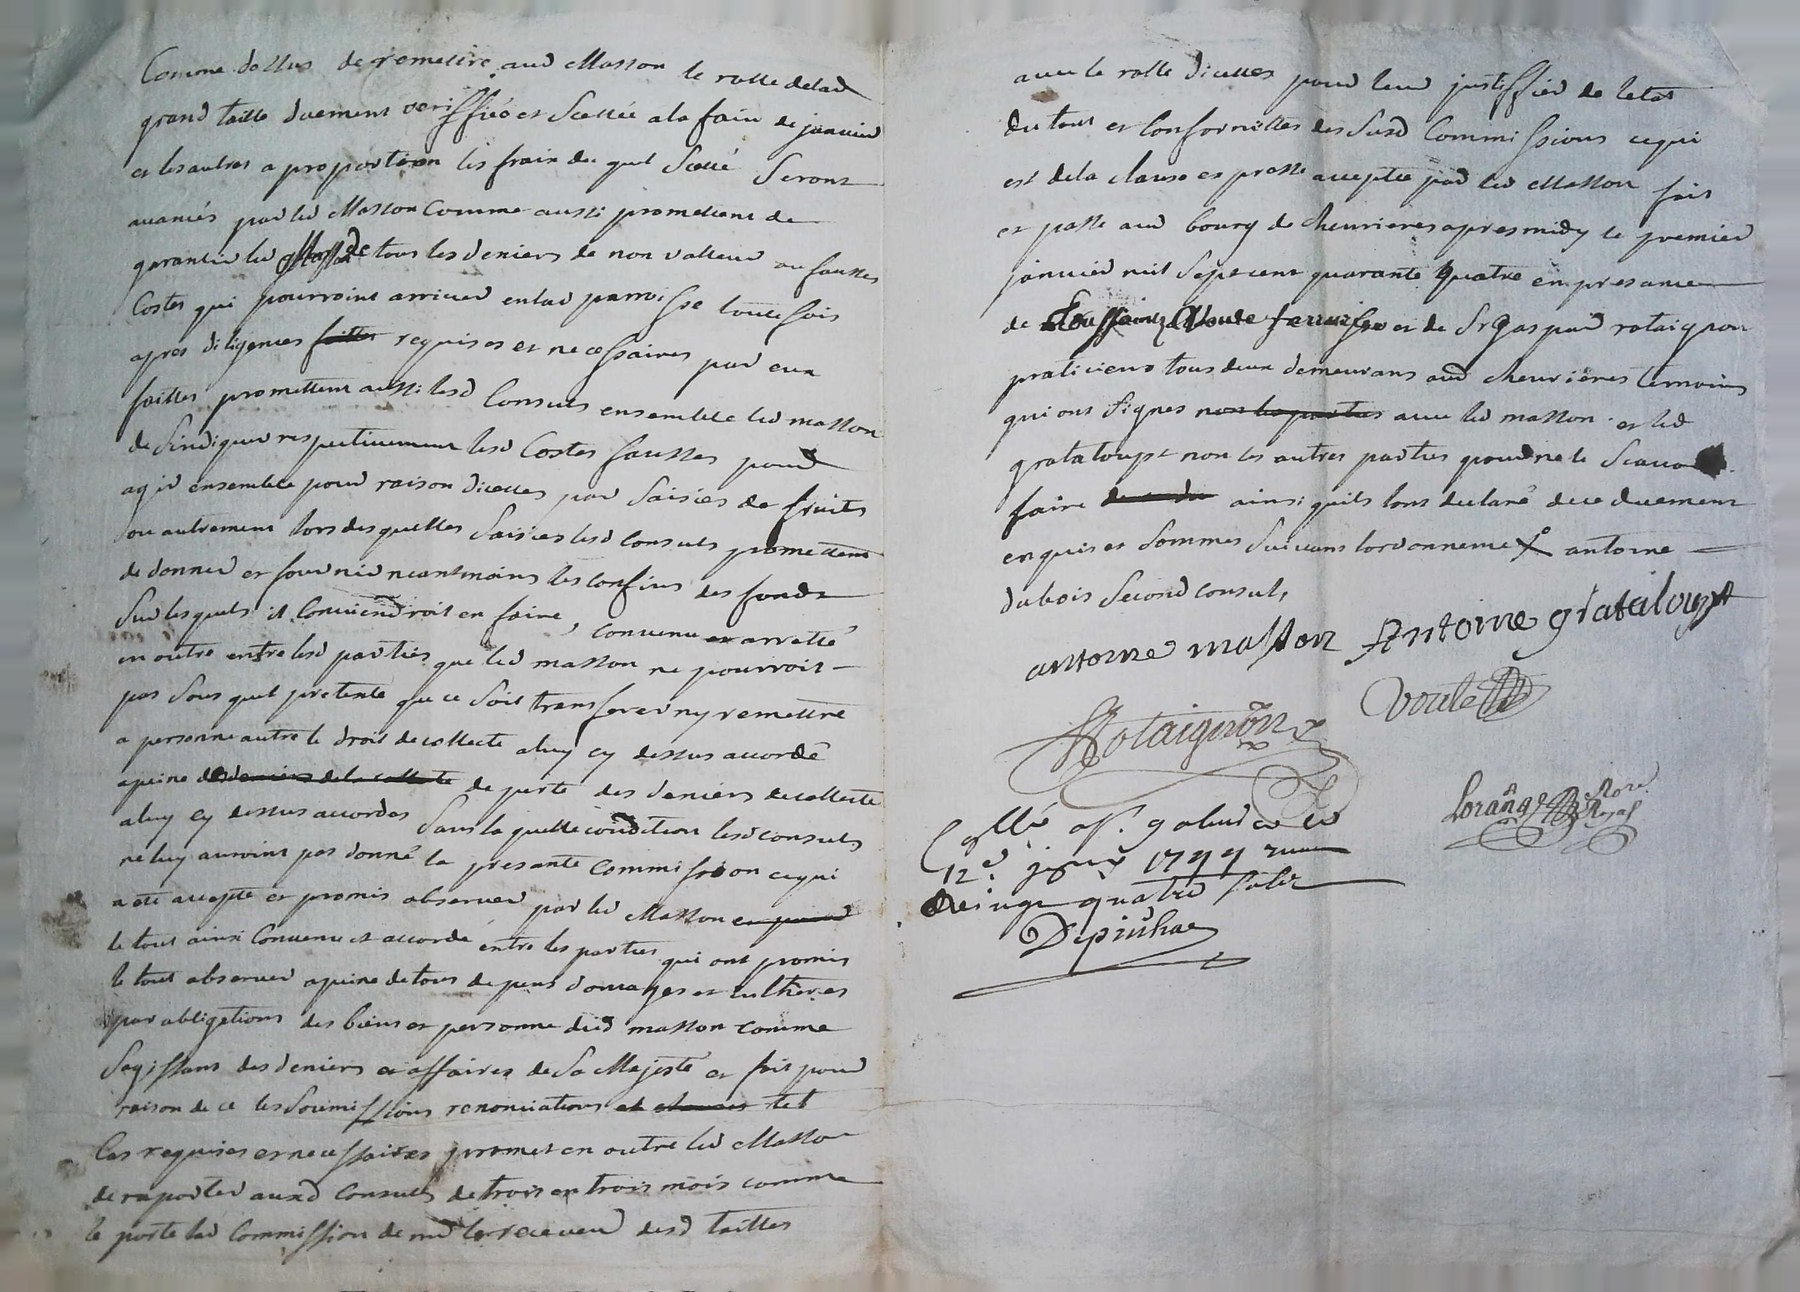 Comme dessus de remettre aud Masson le rolle delad
grand taille duement veriffiée et scellée a la fain de janvier
et les autres a proportion les frain du quel scellé seront
avancés par led Masson Comme aussi promettent de
garantir led Masson de tous les deniers de non valleur ou fausses
Costes qui pourroint arriver en lad parroisse toutefois
apres diligences requises et necessaires par eux
faittes promettent aussi lesd Consuls ensemble led masson
de sindiquer respectivement lesd Costes fausses pour
agir ensemble pour raison dicelles par saisies de fruits
ou autrement lors desquelles saisies lesd Consuls promettent
de donner et fournir neantmoins les confins des fonds
sur lesquels il Conviendroit en faire, convenu et arretté
en outre entre lesd parties que led masson ne pourroit
pas sous quel pretexte que ce soit transferer ny remettre
a personne autre le droit de collecte a luy cy dessus accordé
a peine des deniers de la collecte de perte des deniers de collecte
a luy cy dessus accordes sans la quelle condition lesd consuls
ne luy auroint pas donné la presante Commission ce qui
a eté accepté et promis observer par led Masson
le tout ainsi Convenu et accordé entre les parties qui ont promis
le tout observer a peine de tous depens domages et intherez
par obligations des biens et personne dud masson comme
sagissant des deniers et affaires de Sa Majesté et fait pour
raison de ce les soumissions renonciations et clauses tel
les requises et necessaires promet en outre led Masson
de raporter auxd Consuls de trois en trois mois comme
le porte lad Commission de mr le receveur desd tailles
avec le rolle dicelles pour leur justiffier de letat
du tout et Conformittes des susd Commissions ce qui
est de la clause expresse acceptée par led Masson fait
et passé aud bourg de cheurieres apres midy le premier
janvier mil sept cent quarante quatre en presance
de et de Sr Gaspard rotaignon
praticiens tous deux demeurans aud cheurières temoins
qui ont signes non les parties avec led masson et led
grataloup et non les autres parties pour ne le scavoir
faire ainsi quils lont declaré de ce duement
enquis et sommes suivant lordonnence antoine
dubois second consul,
antoine masson Antoine grataloup
Rotaignon Voute
Lorange Nore Royal
Collé a St. galmier le
12e janr 1744 recu
vingt quatre sols
Depinhac